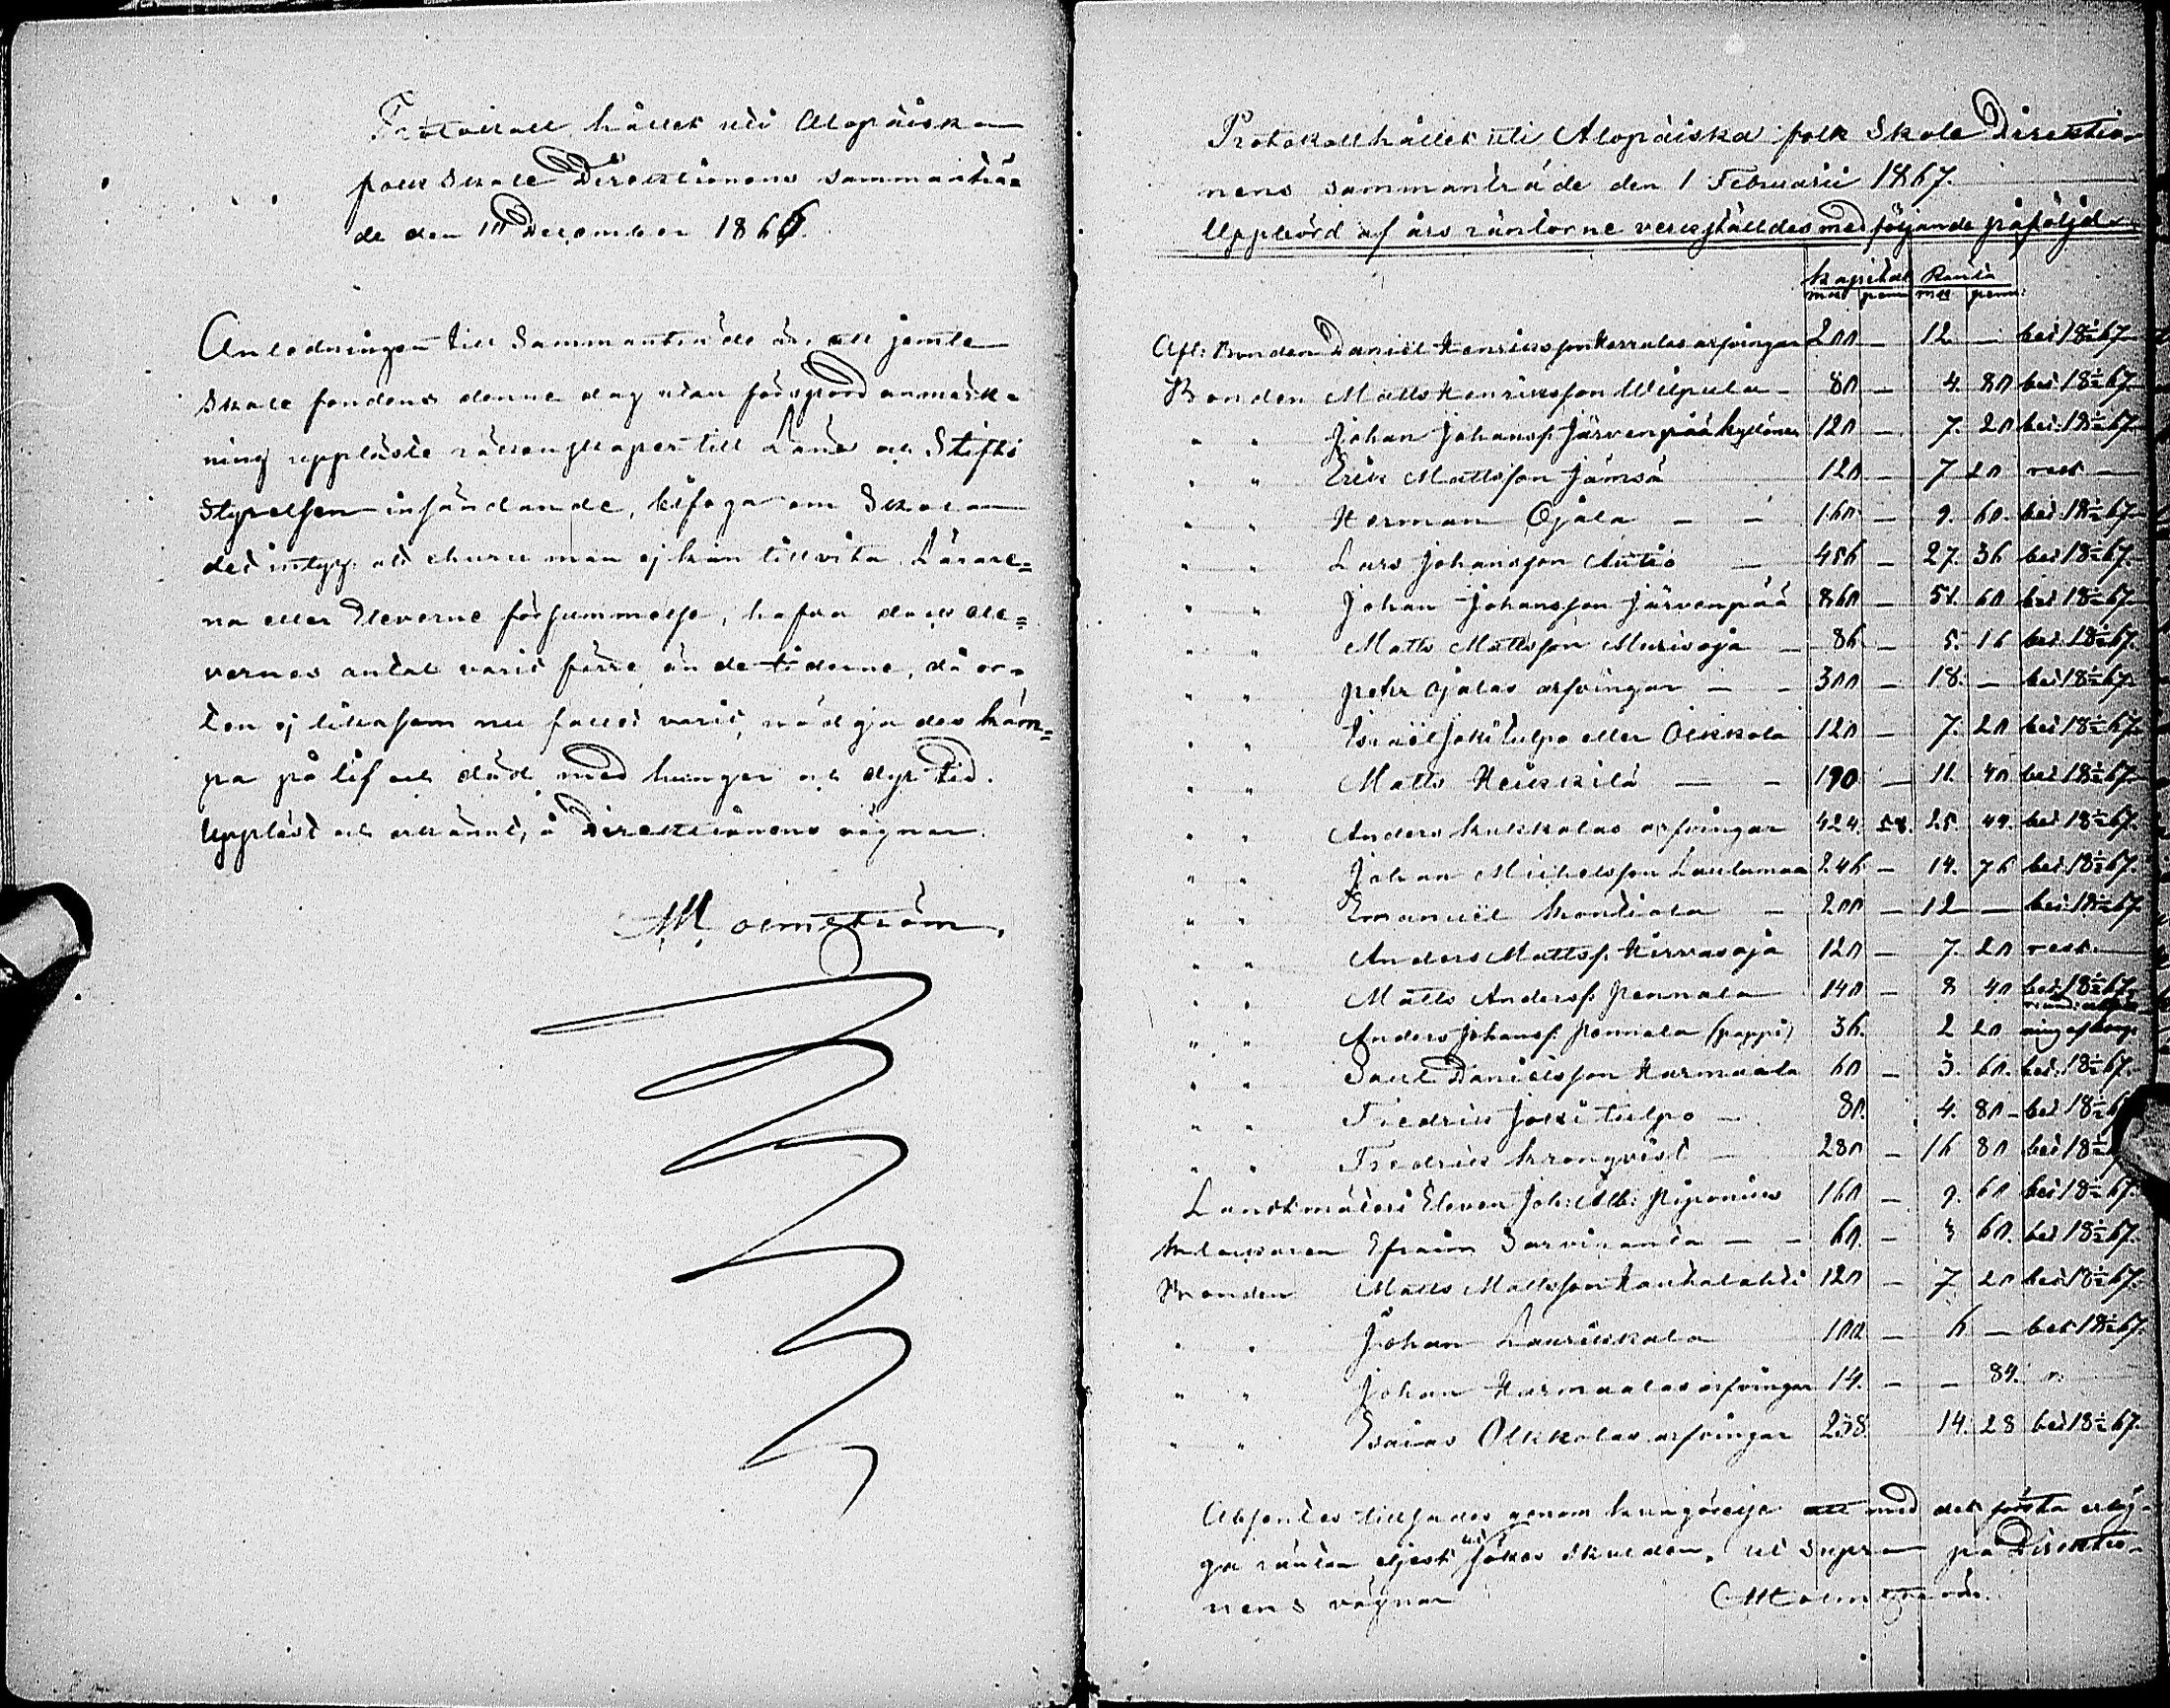 Protocoll hållet uti Alopäiska
folk Skole Direktionens sammanträ-
de den 1 December 1866.
Anledningen till Sammanträde är, att jemte
Skole fondens denne dag utan försport anmärk-
ning uppläste räkenskaper till Låne och Stifts
Styrelsen insändande, bifoga om Skolan
det intyg, att ehuru man ej kan tillvita Lärare=
na eller Eleverne försummelse, hafva dock ele=
vernes antal varit färre än de tiderne, då or-
ten ej likasom nu fallet varit, nödgades käm=
pa på lif och död med hunger och dyr tid.
Uppläst och erkännt, å Direktionens vägnar
M. Holmström.
Protokoll hållet uti Alopäiska folk Skole Direktio-
nens sammanträde den 1 Februarii 1867.
Uppbörd af års räntorne verkställdes med följande påföljd
Kapital Ränta
mark penni mk penni:
Afl: Bonden Daniel Henriksson Herralas arfvingar 200 — 12 — bet: 18 1/2 67
Bonden Matts Henriksson Wilpula — 80 — 4. 80 bet: 18 1/2 67
" " Johan Johanss: Järvenpää Kylönen 120 — 7. 20 bet: 18 1/2 67
" " Erik Mattsson Jämsä 120 — 7 20 rest —
" " Herman Ojala — — 160 — 9. 60. bet: 18 1/2 67
" " Lars Johansson Autio — 456 — 27. 36 bet: 18 1/2 67.
" " Johan Johansson Järvenpää 860 — 51. 60 bet 18 1/2 67
" " Matts Mattsson Murisoja — 86 — 5. 16 bet 18 1/2 67.
" " Pehr Ojalas arfvingar — — 300 — 18. — bet: 18 1/2 67.
" " Israel Jokitulpo eller Olkkola 120 — 7. 20 bet 18 1/2 67.
" " Matts Heikkilä — — 190 — 11. 40 bet 18 1/2 67
" " Anders Kukkolas arfvingar 424. 58. 25. 49. bet 18 1/2 67.
" " Johan Michelsson Lautamaa 246 — 14. 76 bet: 18 1/2 67.
" " Emanuel Kontiola — 200 — 12 — bet: 18 1/2 67.
" " Anders Mattss: Hirvasoja 120 — 7. 20 rest. —
" " Matts Anderss: Pennala 140 — 8 40 bet: 18 1/2 67.
" " Anders Johanss: Pennala (pappi) 36. 2 20
" " Saul Danielsson Harmaala 60 — 3. 60. bet: 18 1/2 67.
" " Fredrik Jokitulpo — 80. 4. 80 — bet 18 1/2 6
" " Fredrik Kronqvist — 280 — 16 80 bet 18 1/2
Landtmäteri Eleven Joh: Alb: Piponius 160 — 9. 60 bet: 18 1/2 67.
Efraim Sarviranta — — 60. — 3 60. bet 18 1/2 67.
Bonden Matts Mattsson Kauhalahti 120 — 7 20 bet 18 1/2 67.
" " Johan Laurikkala 100 — 6 — bet 18 1/2 67.
" " Johan Harmaalas arfvingar 14. — — 84. r.
" " Esaias Olkkolas arfvingar 238. 14. 28 bet 18 1/2 67.
Absentes tillsades genom kungörelse att med det första erläg-
ga räntan eljest utsökes skulden. Ut supra på Direktio-
nens vägnar M Holmström.